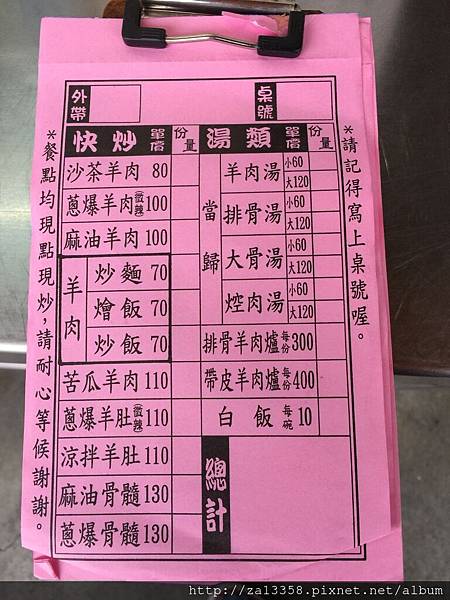 外帶
桌號
快炒 單價 份量
沙茶羊肉 80
蔥爆羊肉(微辣)100
麻油羊肉 100
羊肉
炒麵 70
燴飯 70
炒飯 70
苦瓜羊肉 110
蔥爆羊肚(微辣)110
涼拌羊肚 110
麻油骨髓 130
蔥爆骨髓 130
湯類 單價 份量
當歸
羊肉湯 小60 大120
排骨湯 小60 大120
大骨湯 小60 大120
焢肉湯 小60 大120
排骨羊肉爐 每份 300
帶皮羊肉爐 每份 400
白飯 每碗 10
總計
*請記得寫上桌號喔。
*餐點均現點現炒,請耐心等候謝謝。
http://za13358.pixnet.net/album